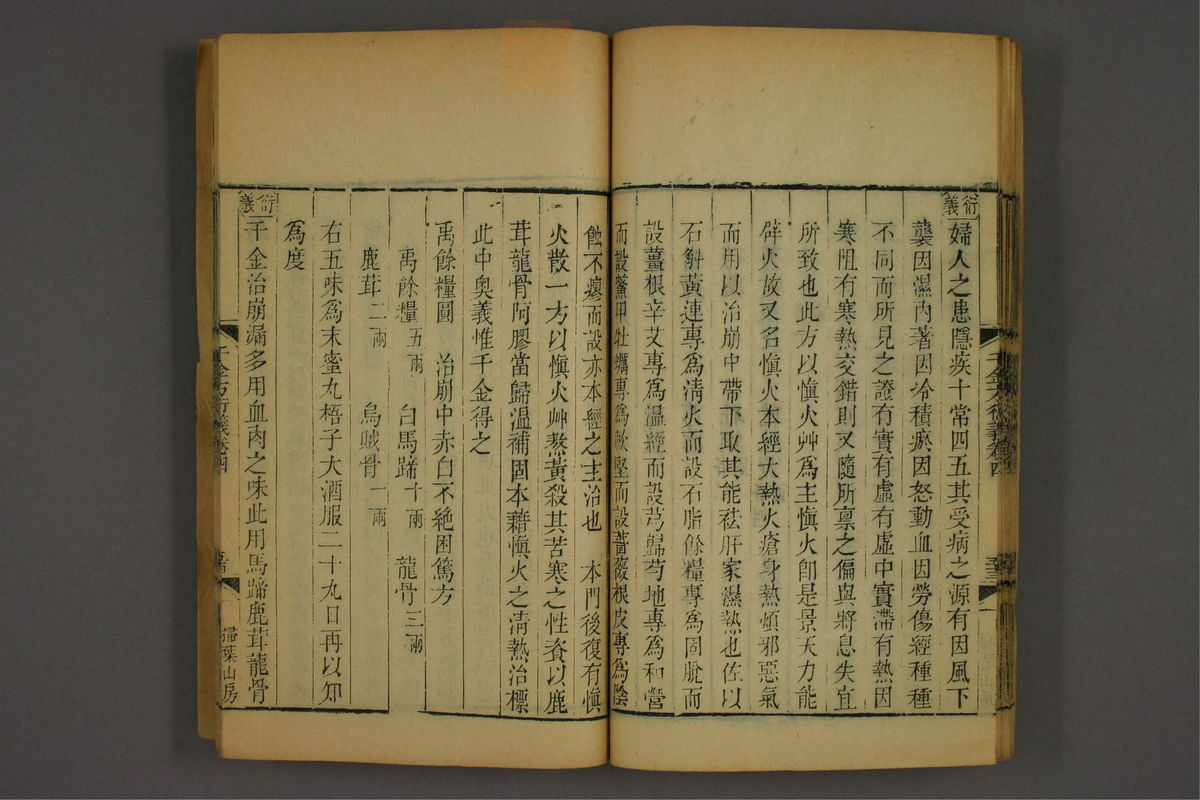 衍義
婦人之患隱疾十常四五其受病之源有因風下
襲因濕內著因冷積瘀因怒動血因勞傷經種種
不同而所見之證有實有虛有虛中實滯有熱因
寒阻有寒熱交錯則又隨所稟之偏與將息失宜
所致也此方以慎火艸為主慎火卽是景天力能
辟火故又名慎火本經大熱火瘡身熱煩邪惡氣
而用以治崩中帶下取其能祛肝家濕熱也佐以
石斛黃連專為淸火而設石脂餘糧專為固脫而
設薑根辛艾專為溫經而設芎歸芍地專為和營
而設鱉甲牡蠣專為軟堅而設薔薇根皮專為陰
蝕不瘳而設亦本經之主治也 本門後復有慎
火散一方以慎火艸熬黃殺其苦寒之性資以鹿
茸龍骨阿膠當歸溫補固本藉慎火之淸熱治標
此中奧義惟千金得之
禹餘糧圓 治崩中赤白不絕困篤方
禹餘糧五兩 白馬蹄十兩 龍骨三兩
鹿茸二兩 烏賊骨一兩
右五味為末蜜丸梧子大酒服二十九日再以知
為度
衍義
千金治崩漏多用血肉之味此用馬蹄鹿茸龍骨
千金方衍義卷四
掃葉山房